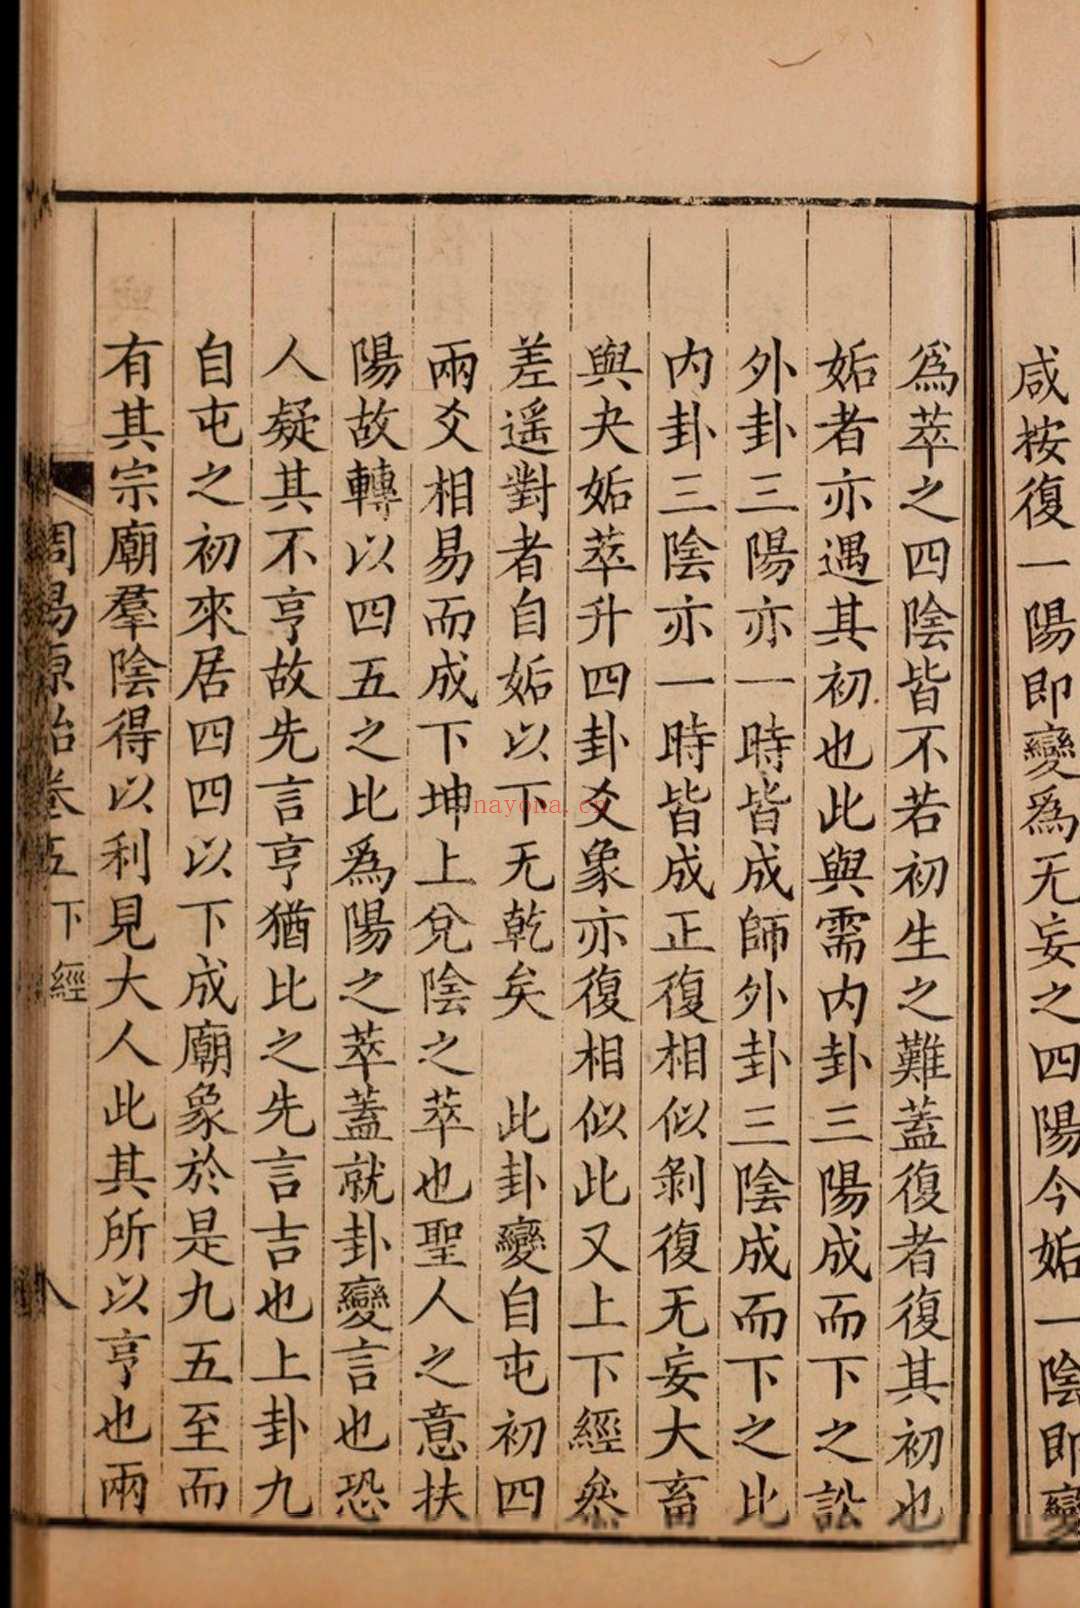 咸按復一陽即變爲无妄之四陽今姤一陰即變
爲萃之四陰皆不若初生之難蓋復者復其初也
姤者亦遇其初也此與需内卦三陽成而下之訟
外卦三陽亦一時皆成師外卦三陰成而下之比
内卦三陰亦一時皆成正復相似剝復无妄大畜
與夬姤萃升四卦爻象亦復相似此又上下經叅
差遥對者自姤以下无乾矣　此卦變自屯初四
兩爻相易而成下坤上兌陰之萃也聖人之意扶
陽故轉以四五之比爲陽之萃蓋就卦變言也恐
人疑其不亨故先言亨猶比之先言吉也上卦九
自屯之初來居四四以下成廟象於是九五至而
有其宗廟羣陰得以利見大人此其所以亨也兩
周易原始卷五 下經
八
nayona.cn